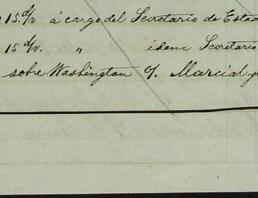 15 d/v á cargo del Secretario de Estado
15 d/v. " idem Secretario
sobre Washington o/. Marcial